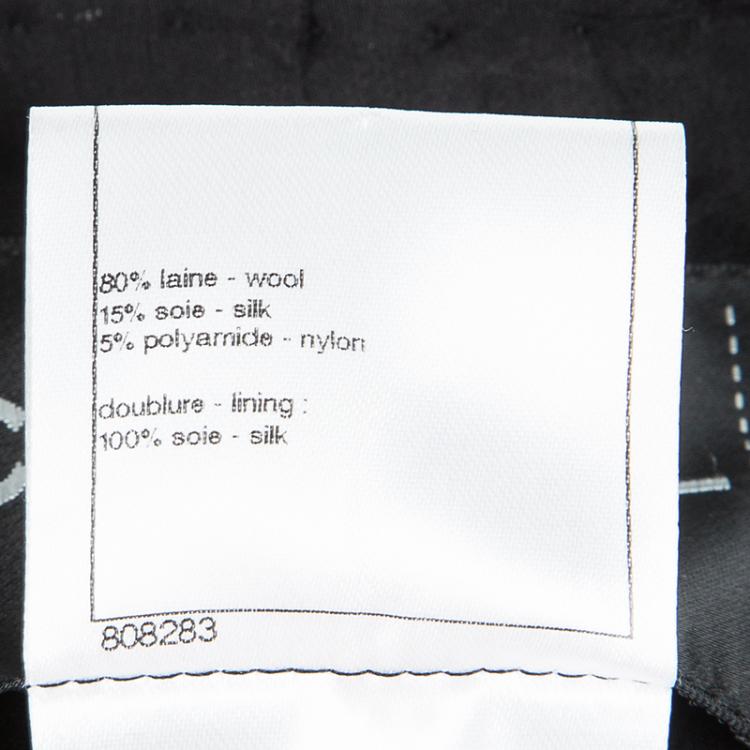 80% laine - wool
15% soie - silk
5% polyamide - nylon
doublure - lining :
100% soie - silk
808283